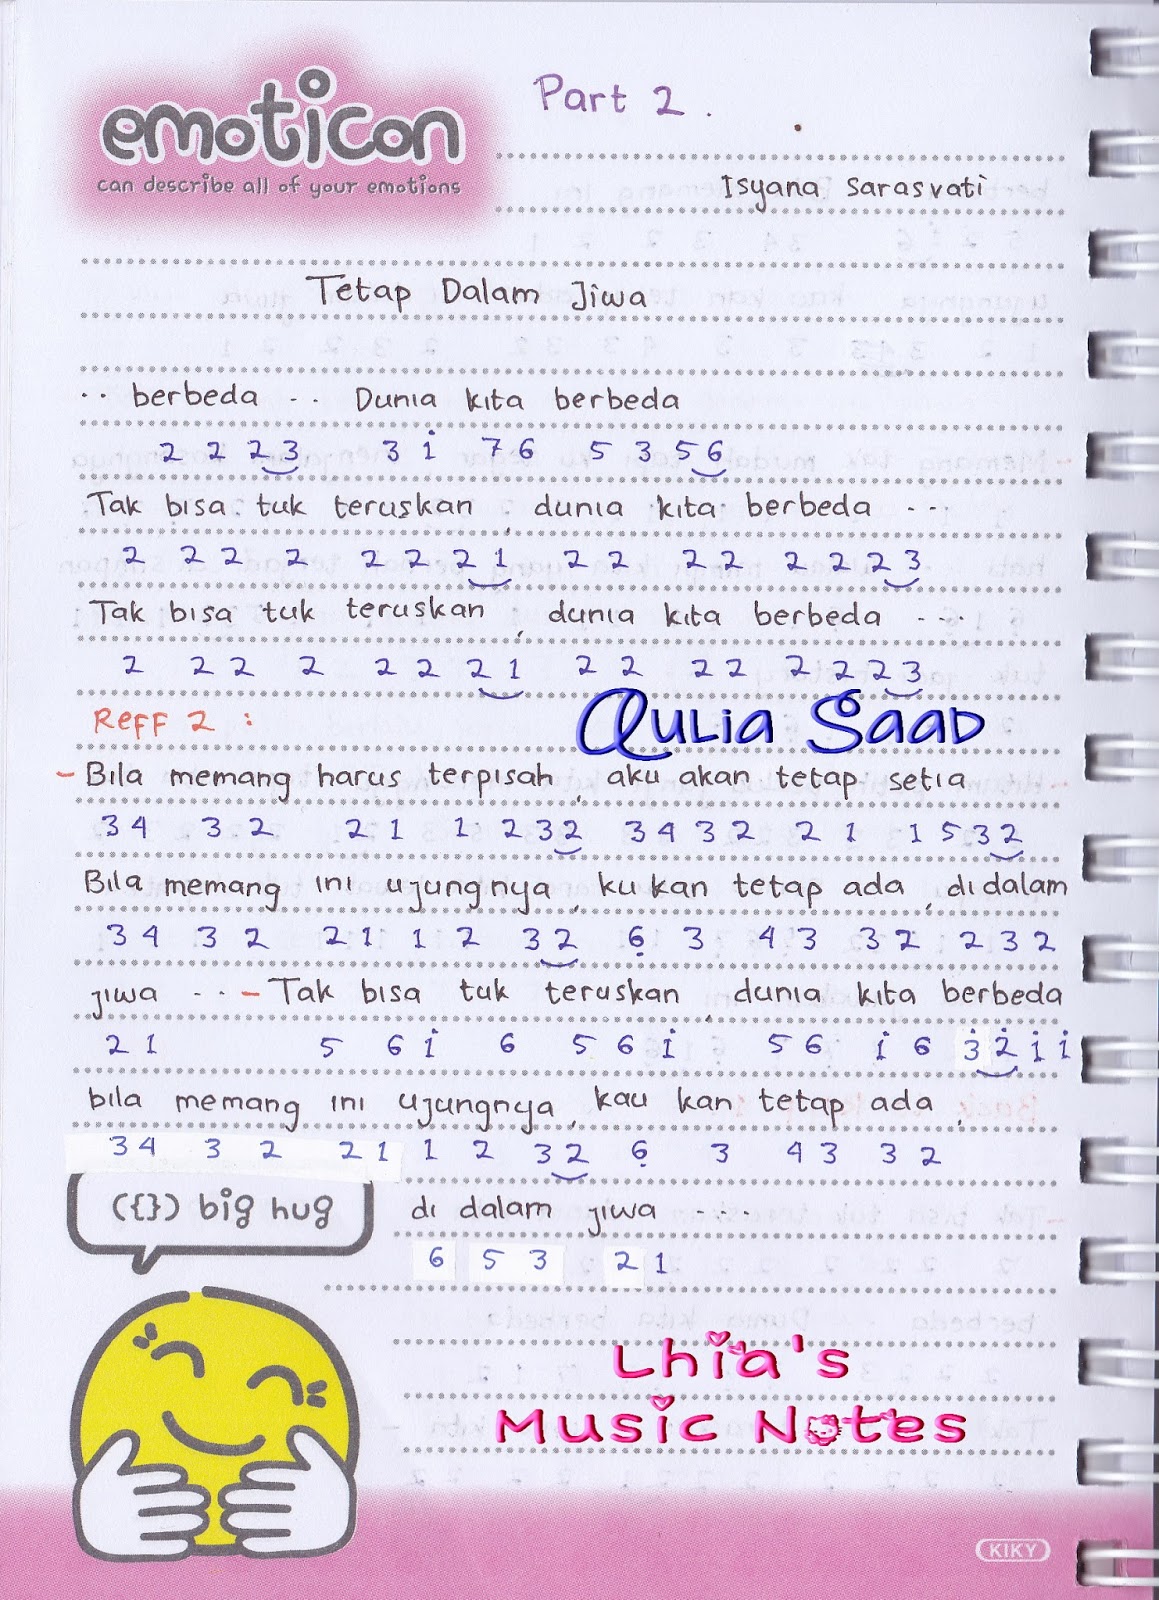 Part 2 .
emoticon
can describe all of your emotions
Isyana Sarasvati
Tetap Dalam Jiwa
.. berbeda .. Dunia kita berbeda
2 2 2 3 3 i 7 6 5 3 5 6
Tak bisa tuk teruskan , dunia kita berbeda ..
2 2 2 2 2 2 2 1 2 2 2 2 2 2 2 3
Tak bisa tuk teruskan , dunia kita berbeda ....
2 2 2 2 2 2 2 1 2 2 2 2 2 2 2 3
Reff 2 :
Aulia Saad
- Bila memang harus terpisah , aku akan tetap setia
3 4 3 2 2 1 1 2 3 2 3 4 3 2 2 1 1 5 3 2
Bila memang ini ujungnya , ku kan tetap ada , di dalam
3 4 3 2 2 1 1 2 3 2 6̣ 3 4 3 3 2 2 3 2
jiwa ... - Tak bisa tuk teruskan , dunia kita berbeda
2 1 5 6 i 6 5 6 i 5 6 i 6 3̇ 2̇ i i
bila memang ini ujungnya , kau kan tetap ada ,
3 4 3 2 2 1 1 2 3 2 6̣ 3 4 3 3 2
({}) big hug
di dalam jiwa ....
6 5 3 2 1
Lhia's
Music Notes
KIKY